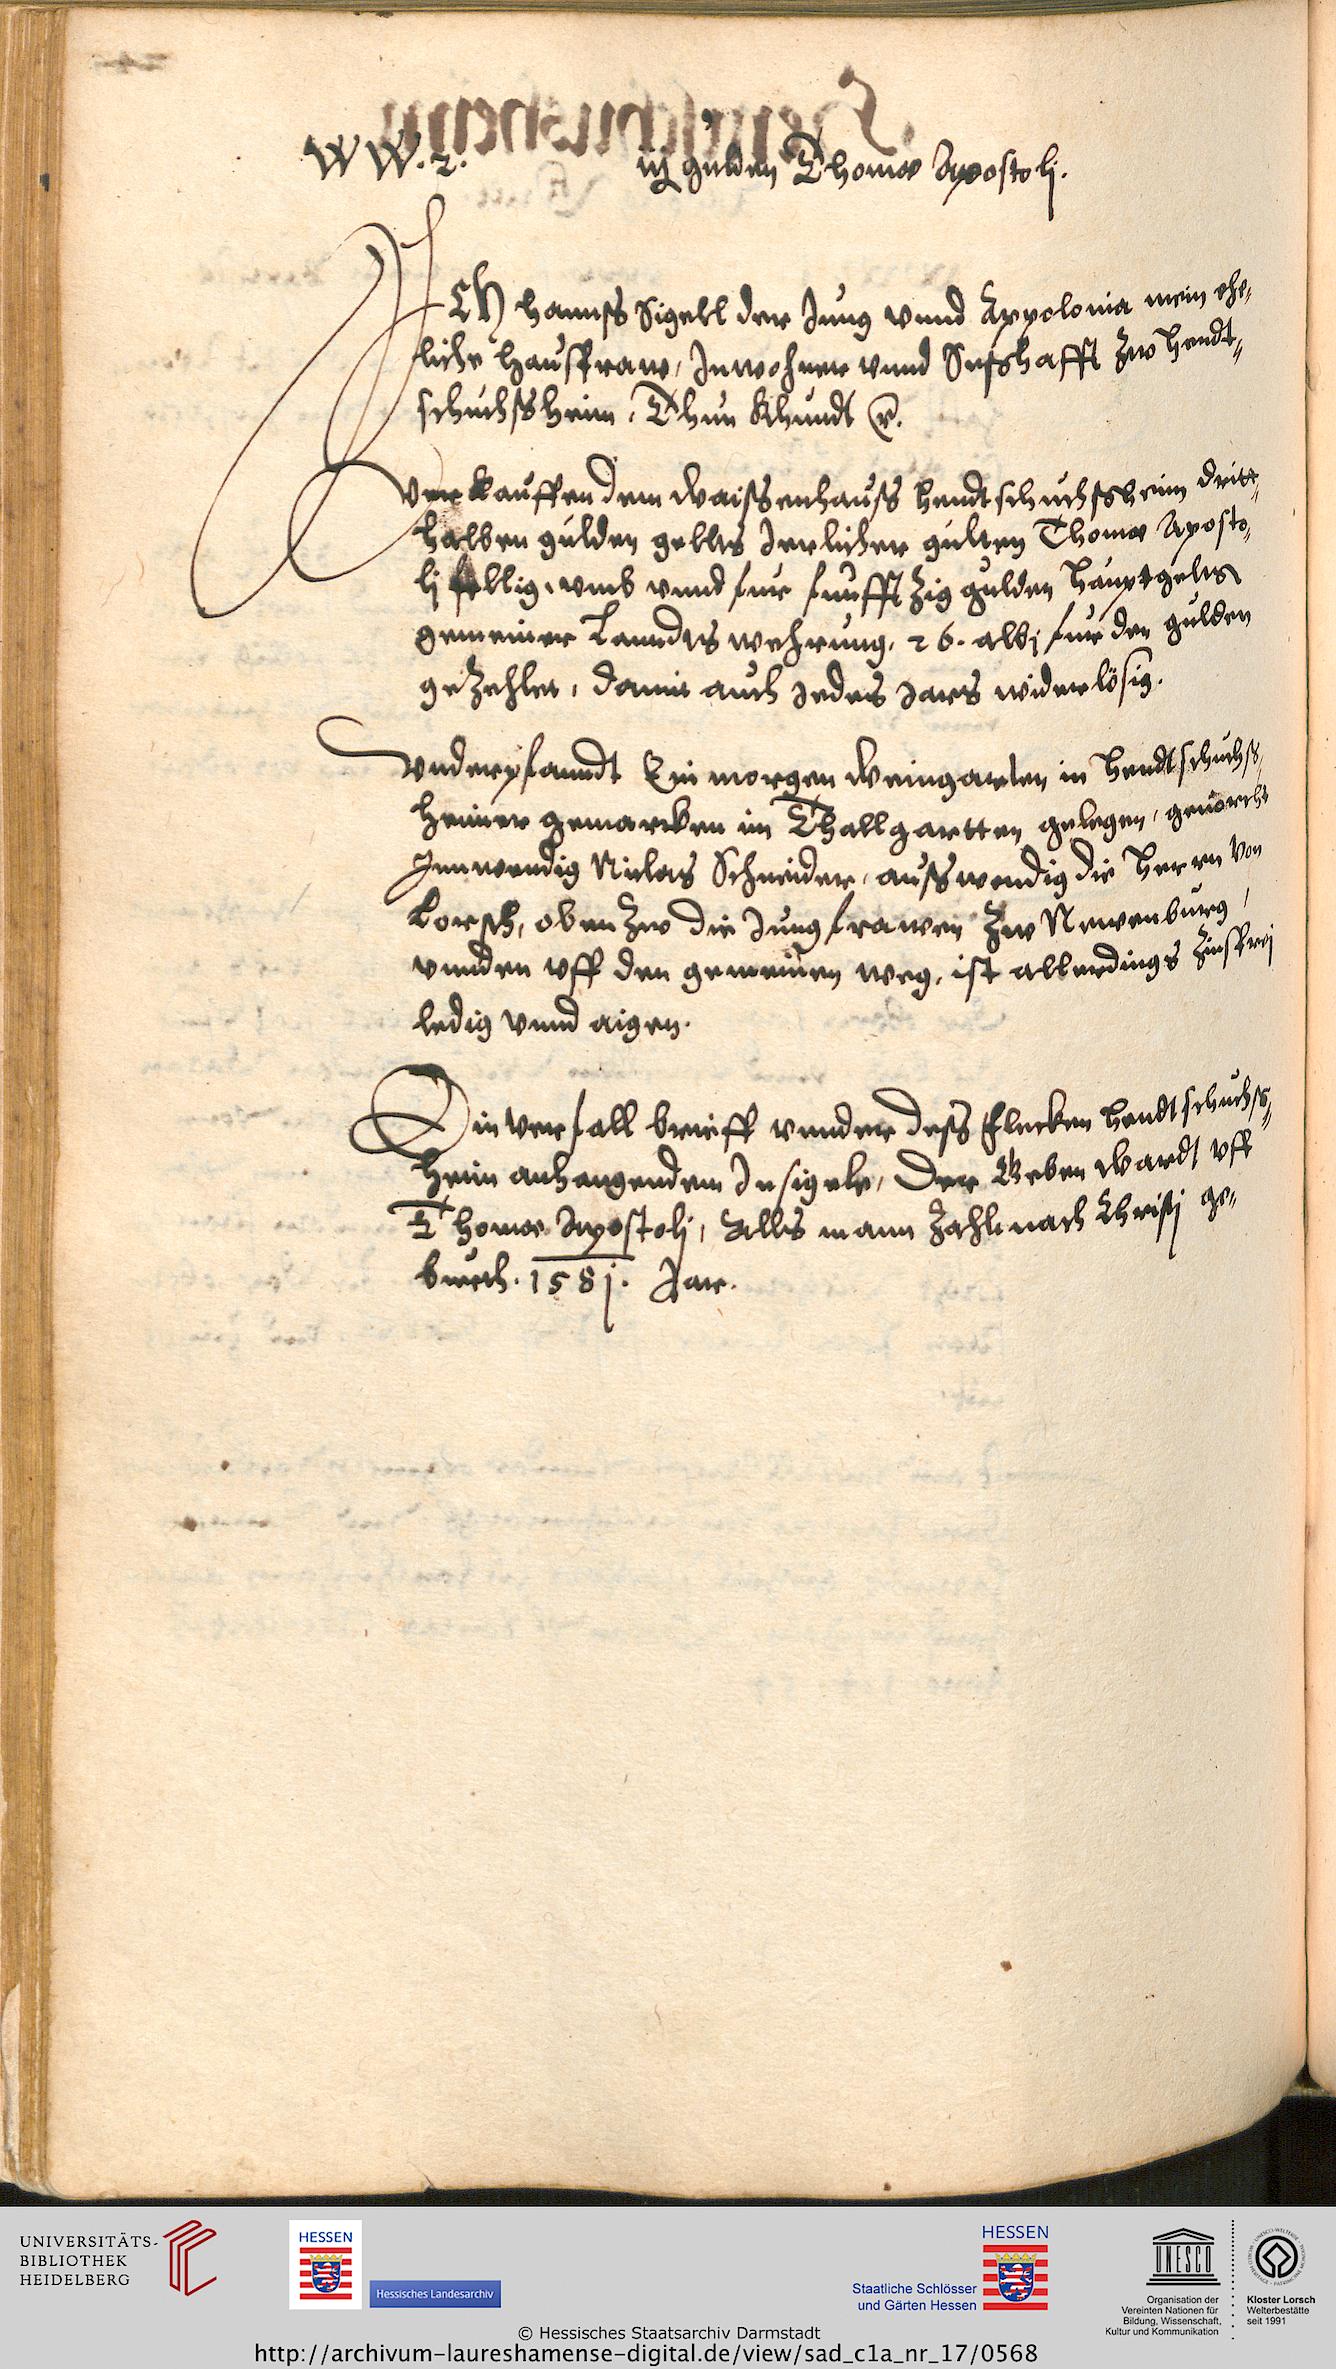 WW. 2. iij gulden Thomæ Apostolj.
Ich hannß Sigell der Jung vnnd Appolonia mein ehe,
liche haußfraw, Inwohner vnnd Seßhafft zw hendt„
schuchßheim, Thun Khundt
Verkauffen dem Waißenhauß hendtschuchßheim dritt„
halben gulden gellts Jerlicher gulten Thomæ Aposto,
lj fellig, vmb vnnd fur funfftzig gulden hauptgelts
gemeiner Lanndtswehrung, 26. albj fur den gulden
gezehlet, damit auch Jedes Jars widerlösig.
Vnderpfanndt Ein morgen Weingarten in hendtschuchß,
heimer gemarcken im Thallgartten gelegen, geuorcht
Innwendig Niclas Schneider, außwendig die herrn von
Lorsch, oben zw die Jungfrawen zw Newenburg,
vnnden vff den gemeinen weg, ist allerdings zinßfrej
ledig vnnd aigen.
Ein versall brieff vnnder deß Flecken hendtschuchß„
heim anhangendem Insigele, Der Geben Wardt vff
Thomæ Apostolj, Alls mann zahlt nach Christj ge„
burth. 1581. Jar.
UNIVERSITÄTS-
BIBLIOTHEK
HEIDELBERG
HESSEN
Hessisches Landesarchiv
HESSEN
Staatliche Schlösser
und Gärten Hessen
UNESCO
Organisation der
Vereinten Nationen für
Bildung, Wissenschaft,
Kultur und Kommunikation
Kloster Lorsch
Welterbestätte
seit 1991
© Hessisches Staatsarchiv Darmstadt
http://archivum-laureshamense-digital.de/view/sad_c1a_nr_17/0568